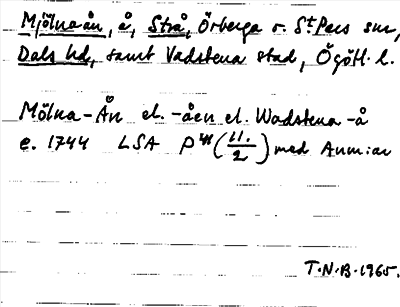 Mjölna-ån, å, Strå, Örberga o. S:t Pers snr,
Dals hd, samt Vadstena stad, Ögötl. l.
Mölna-Ån el. -åen el. Wadstena-å
e. 1744 LSA P 41 (11./2) med Anm:ar
T.N.B. 1965.